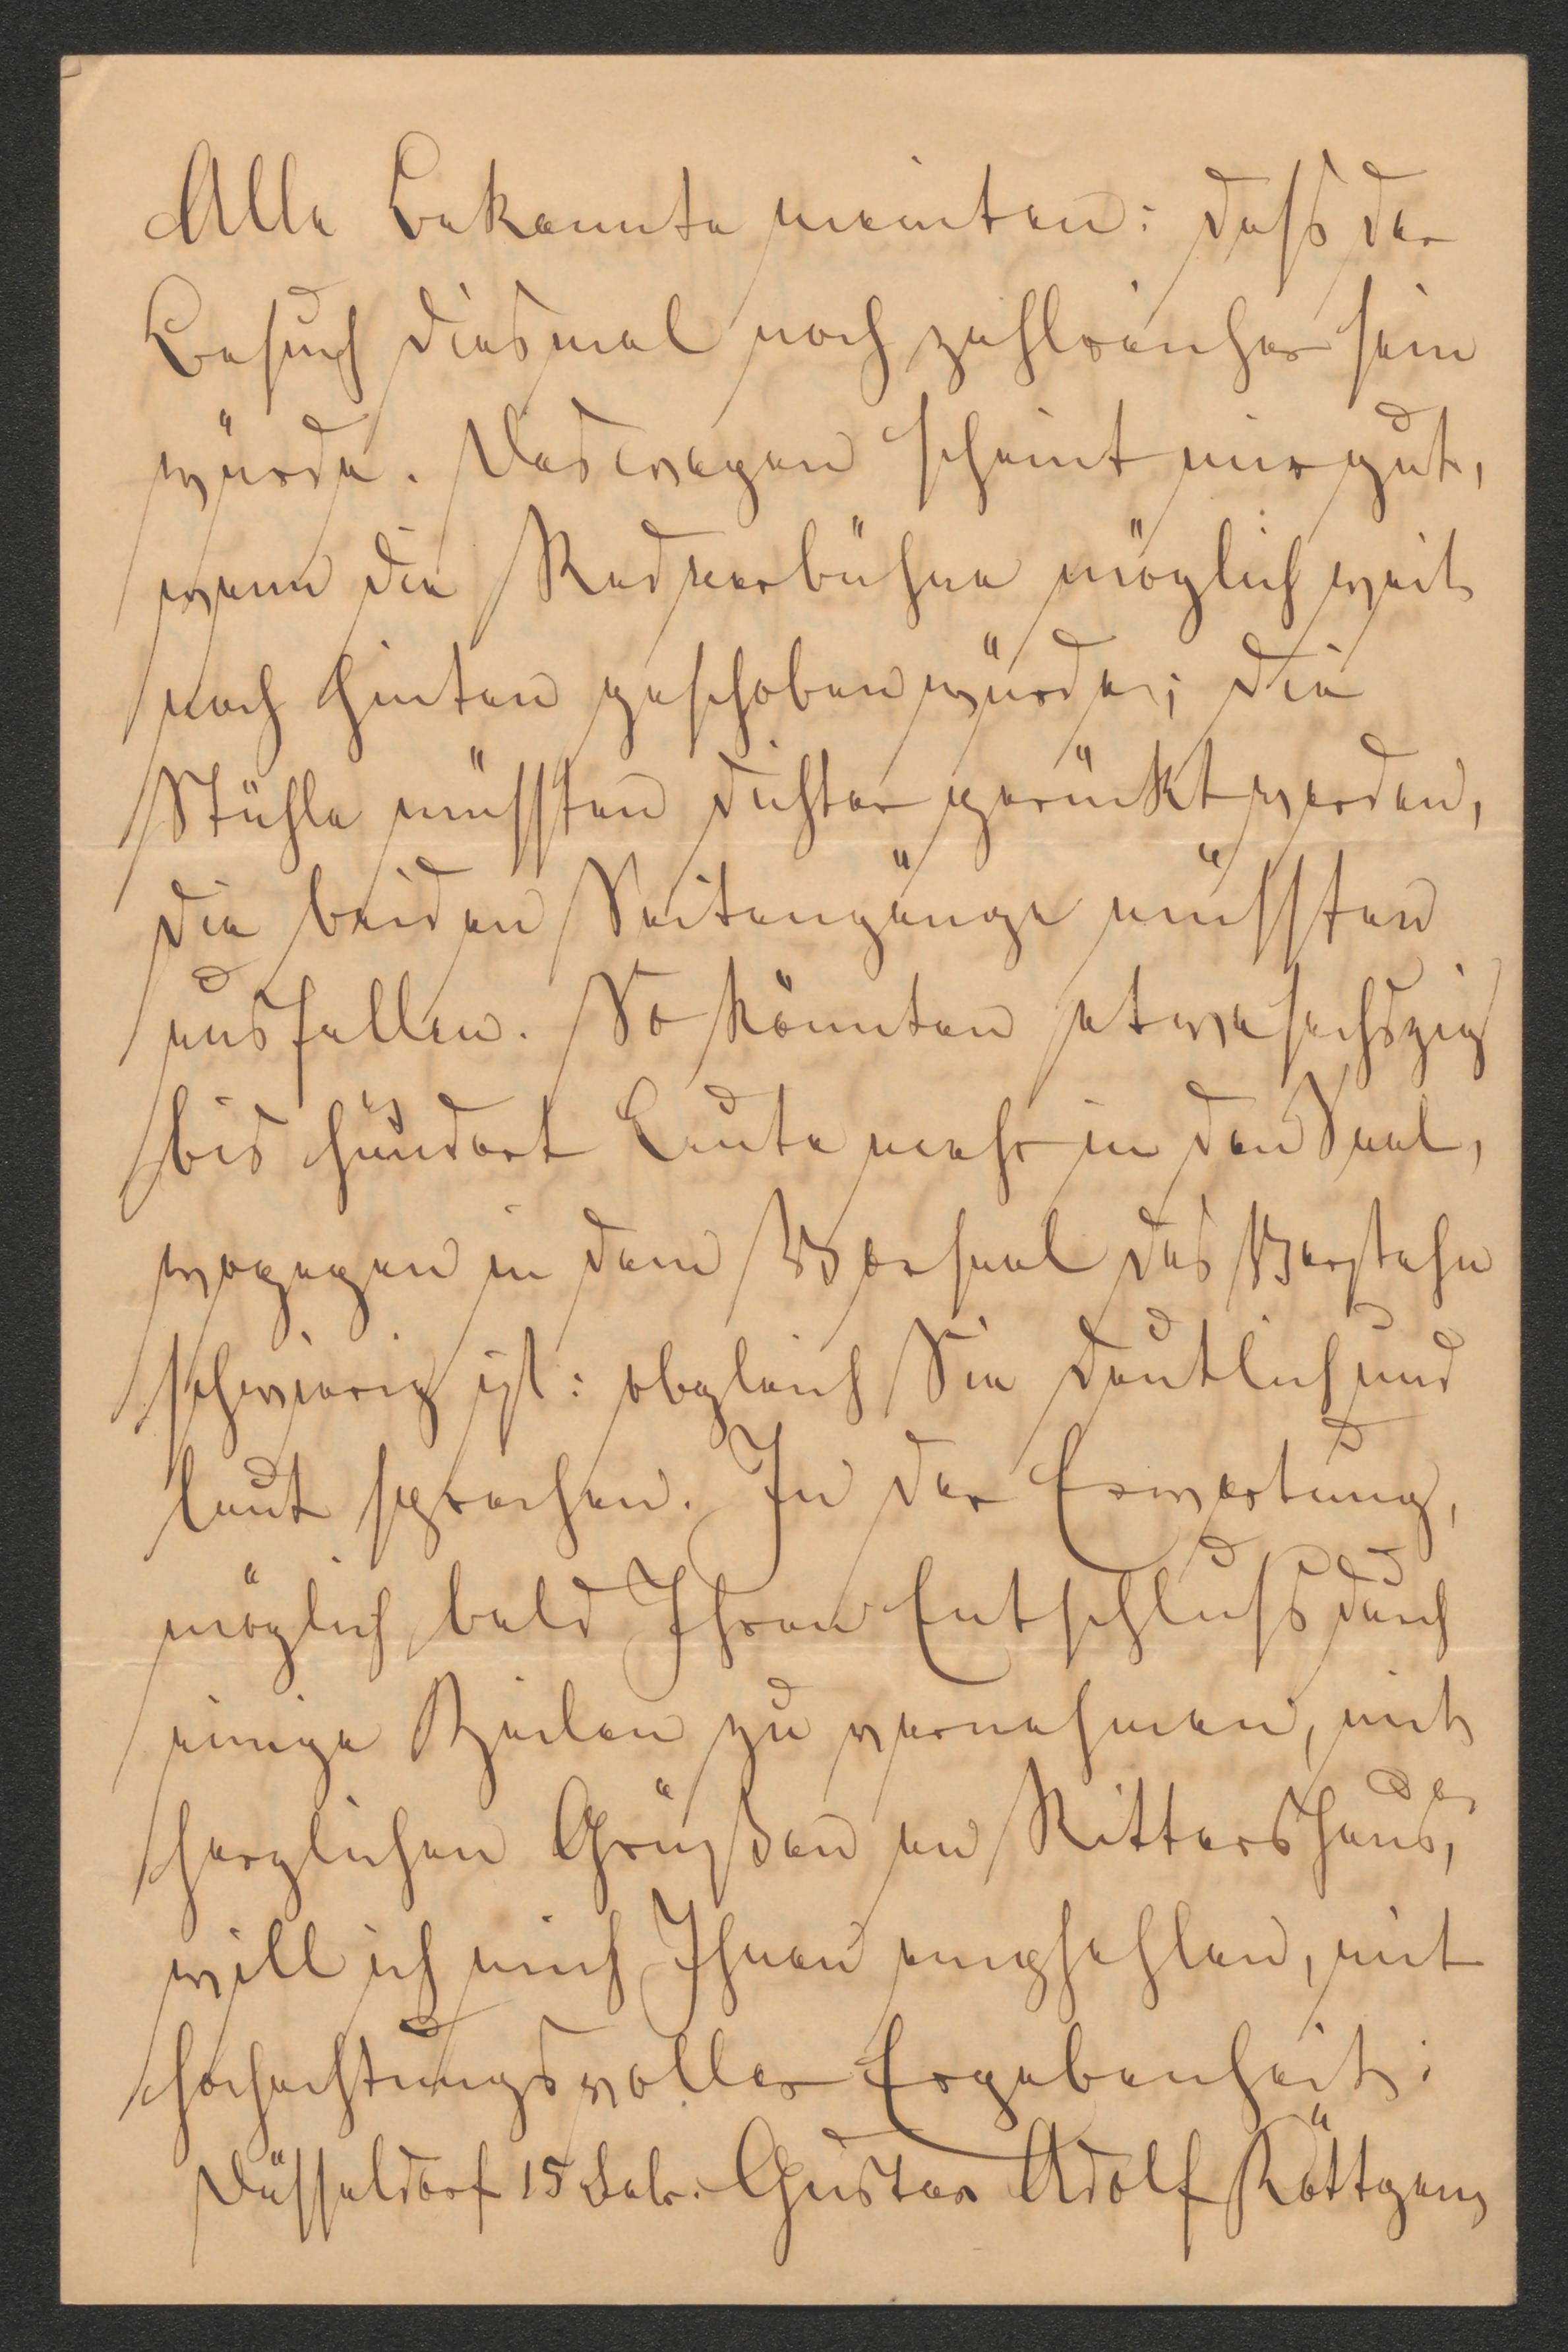 Alle Bekannte meinten: daß der
Besuch diesmal noch zahlreicher sein
würde. Deswegen scheint mir gut,
wenn die Rednerbühne möglich weit
nach hinten geschoben würde; die
Stühle müßten dichter gerückt werden,
die beiden Seitengänge müßten
ausfallen. So könnten etwa sechszig
bis hundert Leute mehr in den Saal,
wogegen in dem Vorsaal das Verstehn
schwierig ist: obgleich Sie deutlich und
laut sprachen. In der Erwartung,
möglich bald Ihren Entschluß durch
einige Zeilen zu vernehmen, mit
herzlichen Grüßen an Rittershaus,
will ich mich Ihnen empfehlen, mit
hochachtungsvoller Ergebenheit:
Düsseldorf 15 Gustav Adolf Köttgen